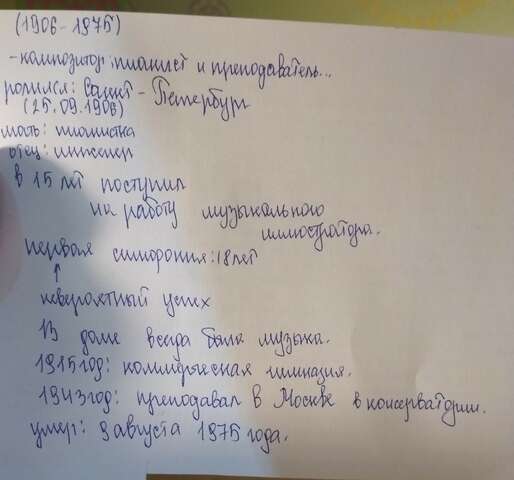 (1906-1975)
- композитор, пианист и преподаватель...
родился: Санкт - Петербург
(25.09.1906)
мать: пианистка
отец: инженер
в 15 лет поступил
на работу музыкального
иллюстратора.
первая симфония: 18 лет
↑
невероятный успех
В доме всегда была музыка.
1915 год: коммерческая гимназия.
1943 год: преподавал в Москве в консерватории.
умер: 9 августа 1975 года.